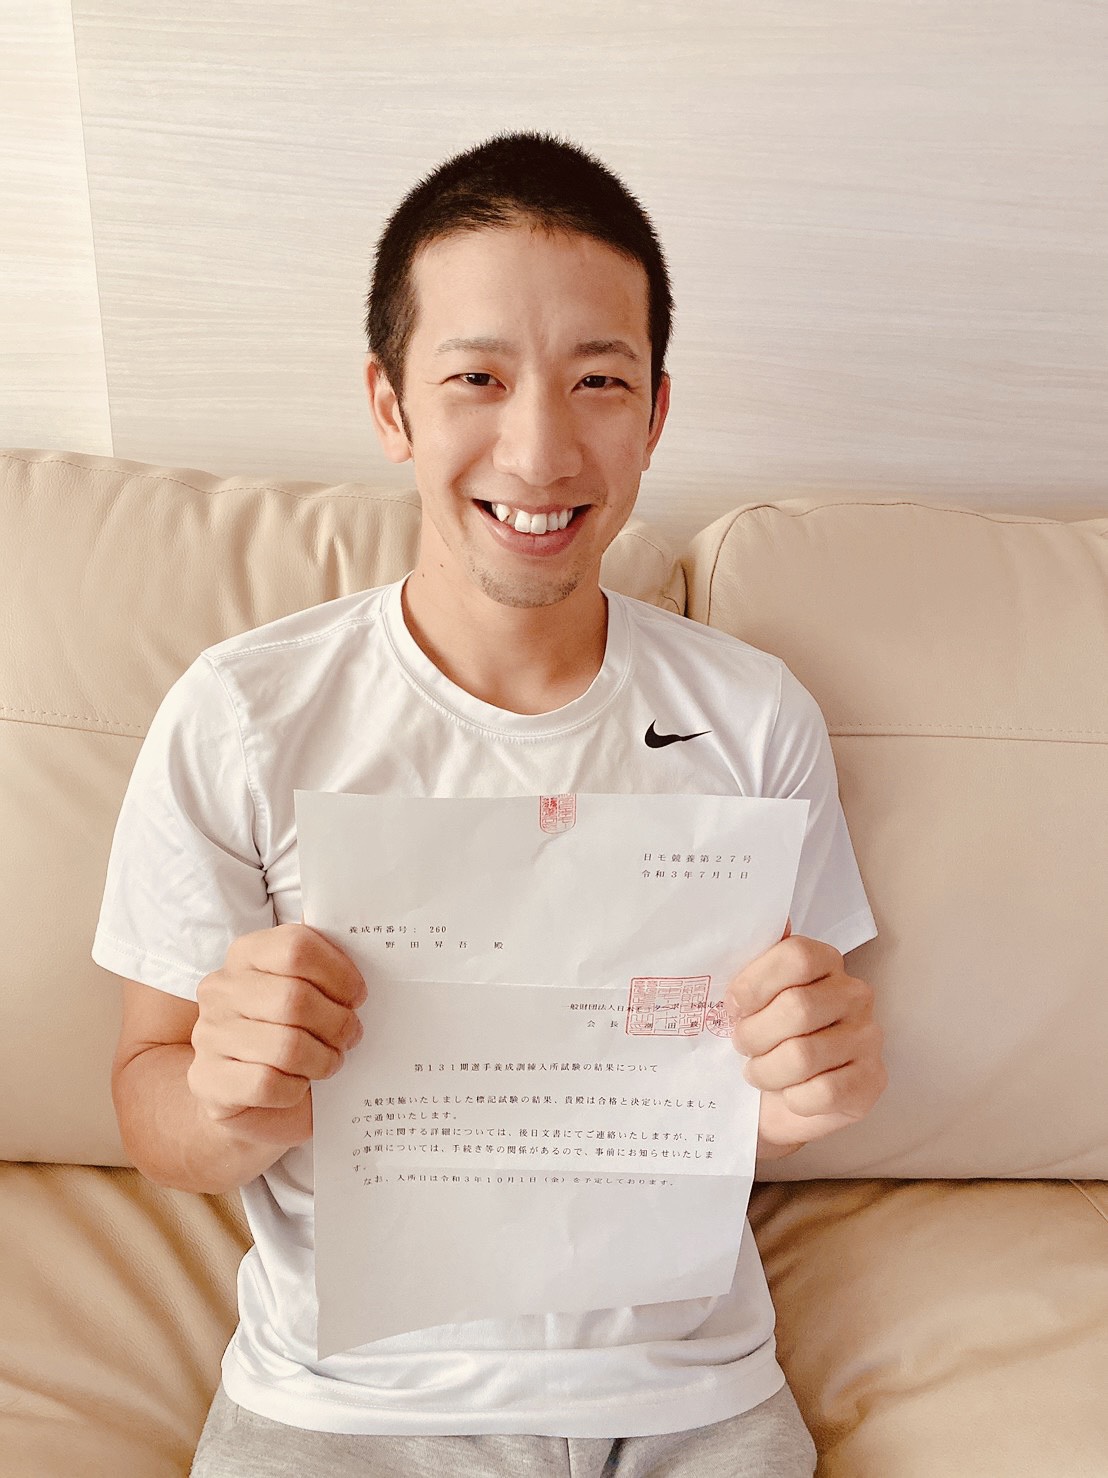 日モ競養第２７号
令和３年７月１日
養成所番号： 260
野田昇吾　殿
一般財団法人日本モーターボート競走会
会長　潮田政明
第１３１期選手養成訓練入所試験の結果について
先般実施いたしました標記試験の結果、貴殿は合格と決定いたしました
ので通知いたします。
入所に関する詳細については、後日文書にてご連絡いたしますが、下記
の事項については、手続き等の関係があるので、事前にお知らせいたしま
す。
なお、入所日は令和３年１０月１日（金）を予定しております。